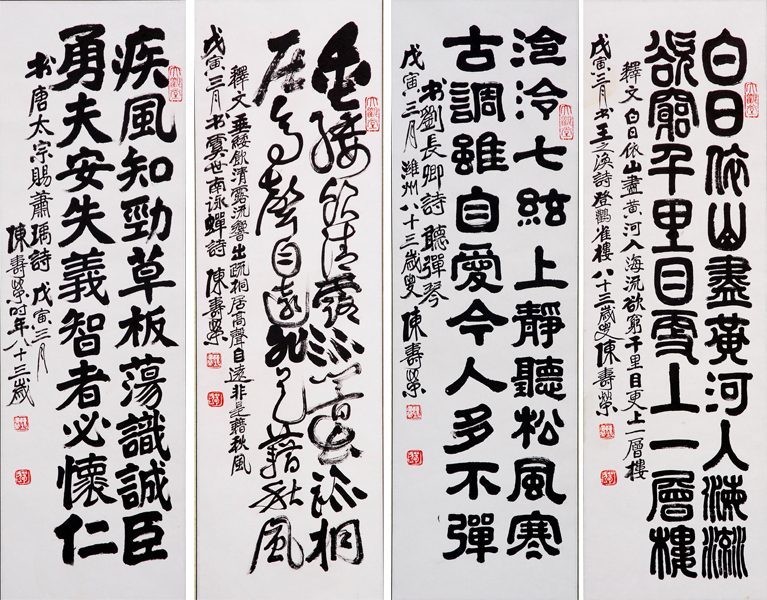 白日依山盡黃河入海流
欲窮千里目更上一層樓
釋文 白日依山盡黃河入海流欲窮千里目更上一層樓
戊寅三月书王之渙詩登鸛雀樓八十三歲叟陳壽榮
泠泠七絃上靜聽松風寒
古調雖自愛今人多不彈
书劉長卿詩聽彈琴
戊寅三月濰州八十三歲叟陳壽榮
垂緌飲清露流響出疏桐
居高聲自遠非是藉秋風
釋文 垂緌飲清露流響出疏桐居高聲自遠非是藉秋風
戊寅三月书虞世南咏蟬詩 陳壽榮
疾風知勁草板蕩識誠臣
勇夫安失義智者必懷仁
书唐太宗賜蕭瑀詩 戊寅三月
陳壽榮时年八十三歲